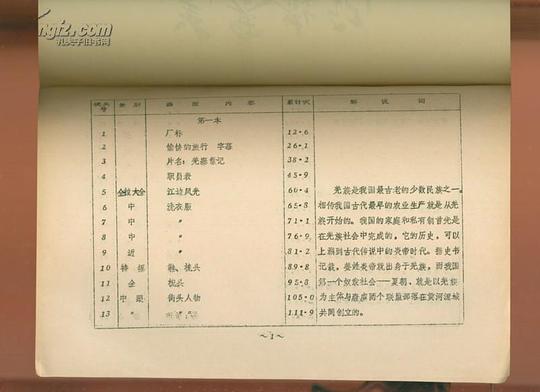 孔夫子旧书网
镜头号 景别 画面内容 累计尺 解说词
第一本
1 厂标 12·6
2 愉快的旅行 字幕 26·1
3 片名：羌寨 记 38·2
4 职员表 45·9
5 全拉大全 江边风光 60·4 羌族是我国最古老的少数民族之一。
6 中 洗衣服 65·8 相传我国古代最早的农业生产就是从羌
7 中 〃 71·1 族开始的。我国的家庭和私有制首先是
8 中 〃 76·9 在羌族社会中完成的，它的历史，可以
9 近 〃 81·2 上溯到古代传说中的炎帝时代。据史书
10 特 摇 融、枕头 89·8 记载，姜姓炎帝就出身于羌族，而我国
11 全 枕头 95·8 第一个奴隶社会——夏朝，就是以羌族
12 中 跟 街头人物 105·0 为主体与 两个联盟部落在黄河流域
13 〃 〃 111·9 共同创立的。
～1～